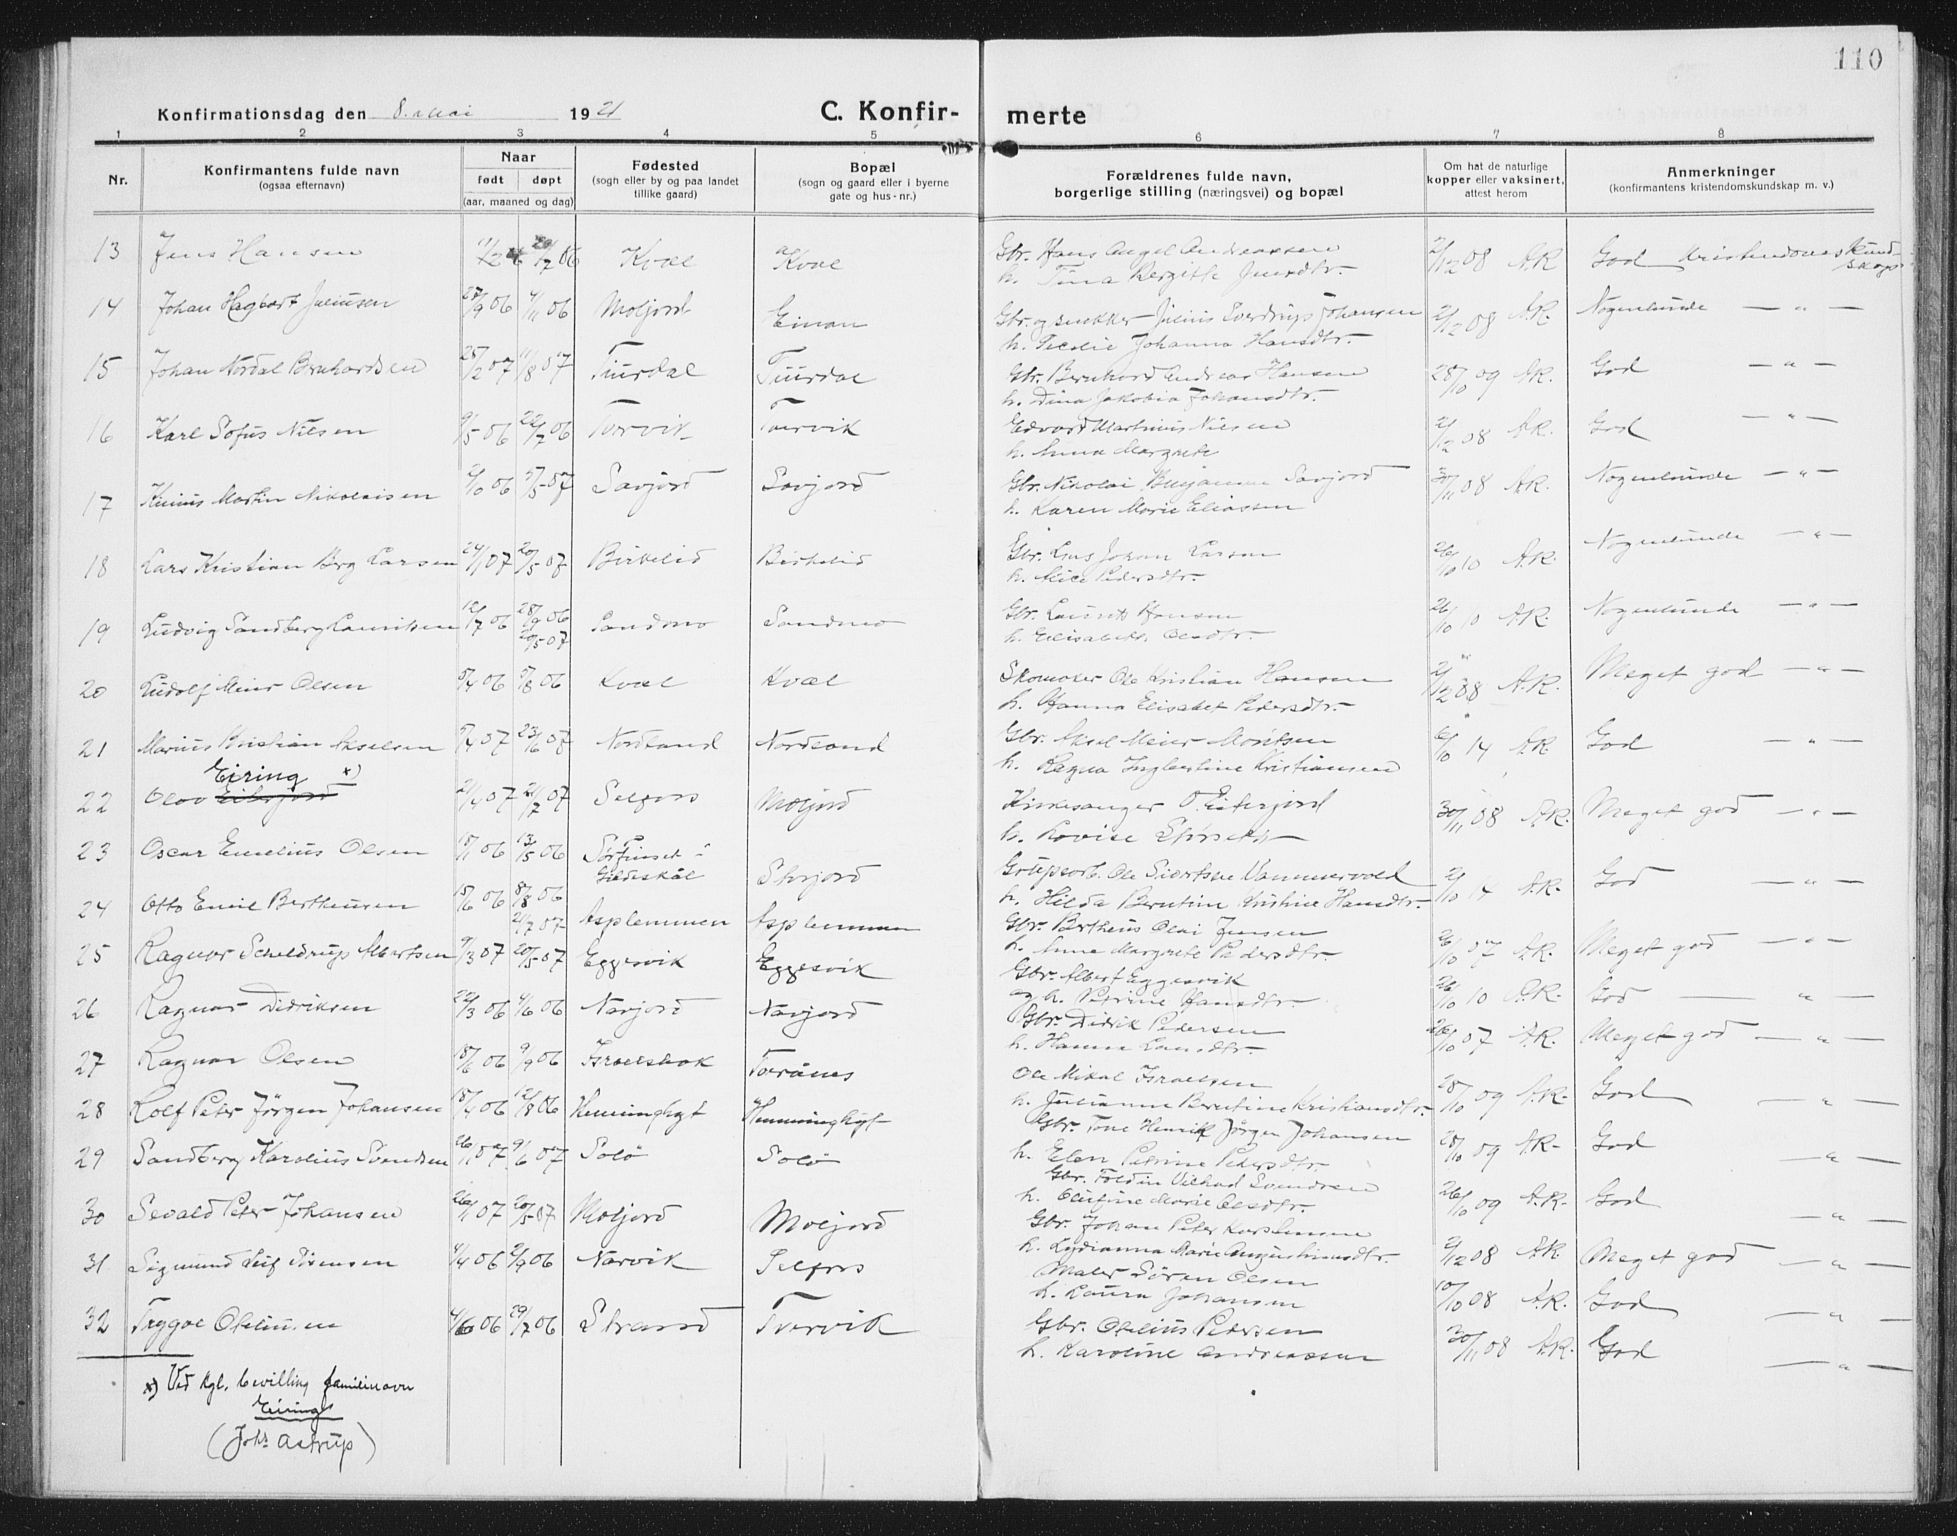 110
Konfirmationsdag den 8. mai 1921 C. Konfir- merte
1 2 3 4 5 6 7 8
Nr. Konfirmantens fulde navn (ogsaa efternavn) Naar født døpt (aar, maaned og dag) Fødested (sogn eller by og paa landet tillike gaard) Bopæl (sogn og gaard eller i byerne gate og hus-nr.) Forældrenes fulde navn, borgerlige stilling (næringsvei) og bopæl Om hat de naturlige kopper eller vaksinert, attest herom Anmerkninger (konfirmantens kristendomskundskap m. v.)
13 Jens Hansen Kvæl Kvæl Gbr. Hans Angel Andreassen 2/12 08 A.R. God Kristendomskundskap
h. Tina Bergette Jensdtr.
14 Johan Hagbart Juliussen 27/9 06 4/11 06 Moljord Einan Gbr. og snekker Julius Sverdrup Johansen 2/12 08 A.R. Nogenlunde — " —
h. Johanna Hansdtr.
15 Johan Nordal Bernhardsen 25/2 07 11/8 07 Tuurdal Tuurdal Gbr. Bernhard Andreas Hansen 28/10 09 A.R. God — " —
h. Dina Jakobia Johansdtr.
16 Karl Sofus Nilsen 9/5 06 22/7 06 Tvervik Tvervik Edvard Martinus Nilsen 2/12 08 A.R. God — " —
h. Anna Margrete
17 Martin Nikolaisen 2/10 06 Savjord Savjord Gbr. Nikolai Benjamin Savjord 30/11 08 A.R. Nogenlunde — " —
h. Karen Marie Eliassen
18 Lars Kristian Brg Larsen 24/1 07 20/5 07 Birkelid Birkelid Gbr. Lars Johan Larsen 26/10 10 A.R. Nogenlunde — " —
h. Pedersdtr.
19 Ludvig Sandberg Lauritsen 12/7 06 28/9 06 Sandmo Sandmo Gbr. Laurits Hansen 26/10 10 A.R. Nogenlunde — " —
20/5 07 h. Elisabeth Olsdtr.
20 Ludolf Meier Olsen 5/4 06 5/8 06 Kvæl Kvæl Skomaker Ole Kristian Hansen 2/12 08 A.R. Meget god — " —
h. Hanna Elisabet Pedersdtr.
21 Marius Kristian Akselsen 5/4 07 23/6 07 Nordsand Nordsand Gbr. Aksel Meier Moritsen 6/10 14 A.R. God — " —
h. Ragna Ingbertine Kristiansen
Eiring x)
22 Olav Eiterjord 21/4 07 21/7 07 Selfors Moljord Kirkesanger O. Eiterjord 30/11 08 A.R. Meget god — " —
h. Lovise
23 Oscar Emelius Olsen 18/1 06 13/5 06 Sørfinset i Gildeskål Storjord Ole Sivertsen Vammervold 2/10 14 A.R. God — " —
h. Hilda Berntine Kristine Hansdtr.
24 Otto Emil Bertheussen 15/6 06 8/8 06 Asplemmen Asplemmen Gbr. Bertheus Olai Jensen 26/10 07 A.R. Meget god — " —
21/7 07 h. Anne Margrete Pedersdtr.
25 Ragnar Scheldrup Albertsen 9/3 07 20/5 07 Eggesvik Eggesvik Gbr. Albert Eggesvik 26/10 10 A.R. God — " —
og h. Petrine Hansdtr.
26 Ragnar Didriksen 22/3 06 4/6 06 Navjord Navjord Gbr. Didrik Pedersen 26/10 07 A.R. Meget god — " —
h. Hanna Larsdtr.
27 Ragnar Olsen 18/6 06 9/9 06 Israelsbak Tveraanes Ole Mikal Israelsen 28/10 09 A.R. God — " —
h. Julianne Berntine Kristiansdtr.
28 Rolf Peter Jörgen Johansen 18/4 06 12/8 06 Henninghyt Henninghyt Gbr. Tone Henrik Jörgen Johansen 28/10 09 A.R. God — " —
h. Elen Petrine Pedersdtr.
29 Sandberg Karolius Svendsen 26/1 07 9/6 07 Solö Solö Gbr. Foldin Vilhad Svendsen 26/10 09 A.R. God — " —
h. Olufine Marie Olsdtr.
30 Sevald Peter Johansen 26/1 07 20/5 07 Moljord Moljord Gbr. Johan Peter Karstensen 2/12 08 A.R. Meget god — " —
h. Lydianna Marie Augustinusdtr.
31 Sigmund Leif Sörensen 4/4 06 2/9 06 Narvik Selfors Maler Sören Olsen 10/10 08 A.R. God — " —
h. Laura Johansen
32 Trygve Otelius­sen 4/6 06 29/7 06 Strand Tvervik Gbr. Otelius Petersen 30/11 08 A.R. God — " —
h. Karoline Andreassen
x) Ved kgl. bevilling familienavn
Eiring
(Johs Astrup)